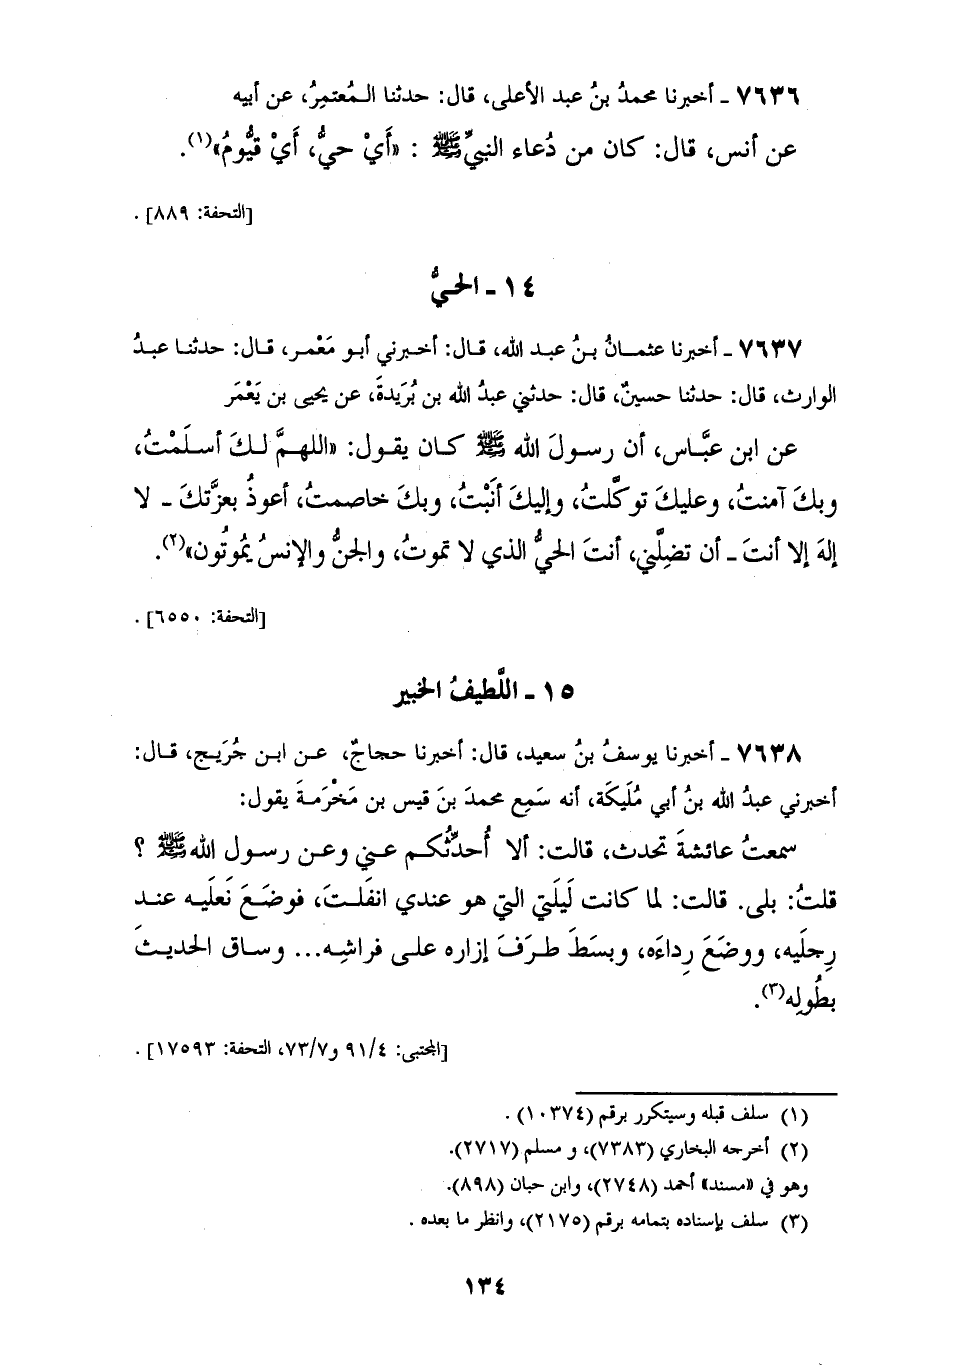 ٧٦٣٦ ـ أخبرنا محمدُ بنُ عبد الأعلى، قال: حدثنا المُعتمِرُ، عن أبيه
عن أنس، قال: كان من دُعاء النبيِّ ﷺ : «أَيْ حيُّ، أَيْ قيُّومُ»(١).
[التحفة: ٨٨٩] .
١٤ ـ الحيُّ
٧٦٣٧ ـ أخبرنا عثمانُ بنُ عبد الله، قال: أخبرني أبو مَعْمر، قال: حدثنا عبدُ
الوارث، قال: حدثنا حسينٌ، قال: حدثني عبدُ الله بن بُرَيدةَ، عن يحيى بن يَعْمَر
عن ابن عبَّاس، أن رسولَ الله ﷺ كان يقول: «اللهمَّ لكَ أسلَمْتُ،
وبكَ آمنتُ، وعليكَ توكَّلتُ، وإليكَ أنَبْتُ، وبكَ خاصمتُ، أعوذُ بعزَّتكَ ـ لا
إلهَ إلا أنتَ ـ أن تضِلَّني، أنتَ الحيُّ الذي لا تموتُ، والجنُّ والإنسُ يموتُون»(٢).
[التحفة: ٦٥٥٠] .
١٥ ـ اللَّطيفُ الخبير
٧٦٣٨ ـ أخبرنا يوسفُ بنُ سعيد، قال: أخبرنا حجاجٌ، عن ابن جُرَيج، قال:
أخبرني عبدُ الله بنُ أبي مُلَيكَة، أنه سَمِع محمدَ بنَ قيس بن مَخْرَمةَ يقول:
سمعتُ عائشةَ تحدث، قالت: ألا أُحدِّثُكم عني وعن رسول الله ﷺ ؟
قلتُ: بلى. قالت: لما كانت لَيلَتي التي هو عندي انفَلتَ، فوضَعَ نَعلَيه عند
رِجلَيه، ووضَعَ رِداءَه، وبسَطَ طرَفَ إزاره على فراشِه... وساق الحديثَ
بطُولِه(٣).
[المجتبى: ٩١/٤ و٧٣/٧، التحفة: ١٧٥٩٣] .
(١) سلف قبله وسيتكرر برقم (١٠٣٧٤) .
(٢) أخرجه البخاري (٧٣٨٣)، و مسلم (٢٧١٧).
وهو في «مسند» أحمد (٢٧٤٨)، وابن حبان (٨٩٨).
(٣) سلف بإسناده بتمامه برقم (٢١٧٥)، وانظر ما بعده .
١٣٤